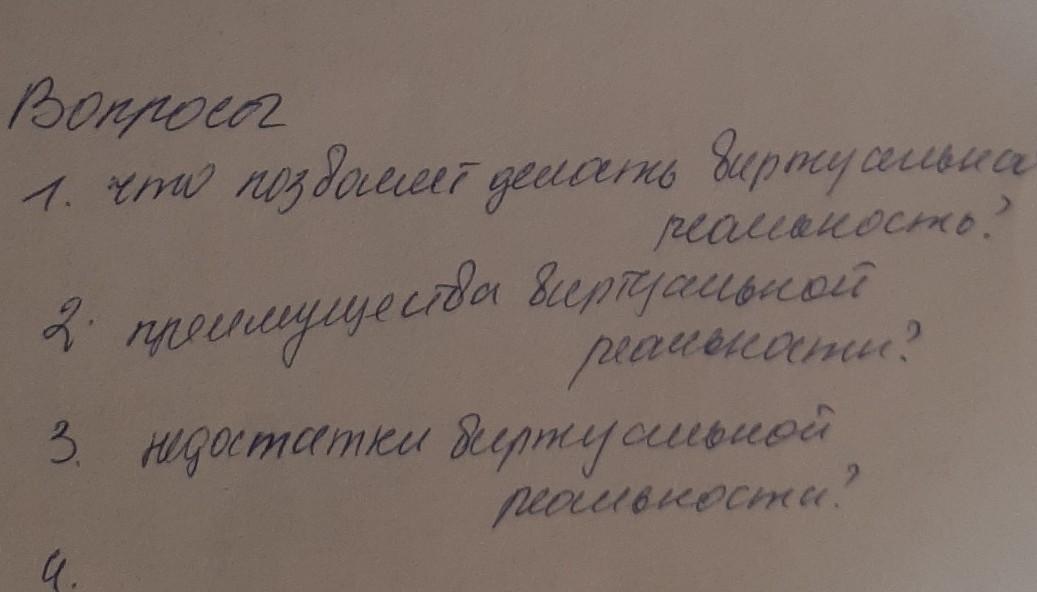 Вопросы
1. что позволяет делать виртуальна
реальность?
2. преимущества виртуальной
реальности?
3. недостатки виртуальной
реальности?
4.